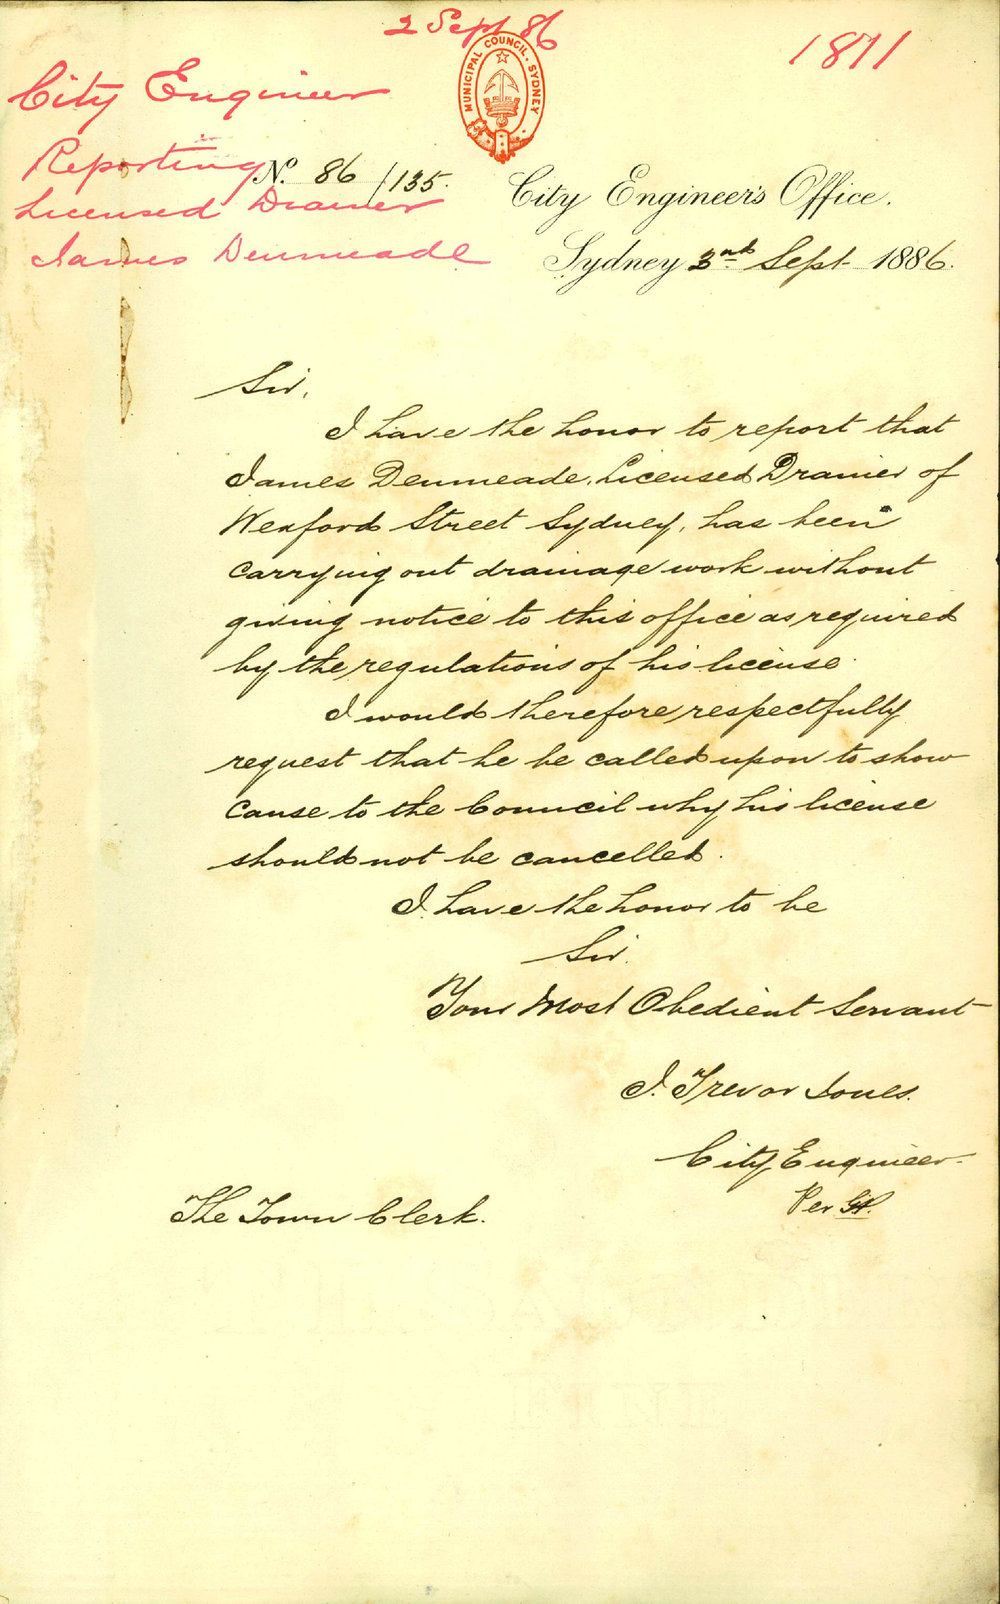 2 Sept 86
1871
MUNICIPAL COUNCIL. SYDNEY
City Engineer
Reporting
Licensed Drainer
James Denmeade
No. 86/135.
City Engineer's Office.
Sydney 3rd Sept 1886.
Sir,
I have the honor to report that
James Denmeade, Licensed Drainer of
Wexford Street Sydney, has been
carrying out drainage work without
giving notice to this office as required
by the regulations of his license.
I would therefore respectfully
request that he be called upon to show
cause to the Council why his license
should not be cancelled.
I have the honor to be
Sir.
Your Most Obedient Servant
J. Trevor Jones.
City Engineer.
Per
The Town Clerk.